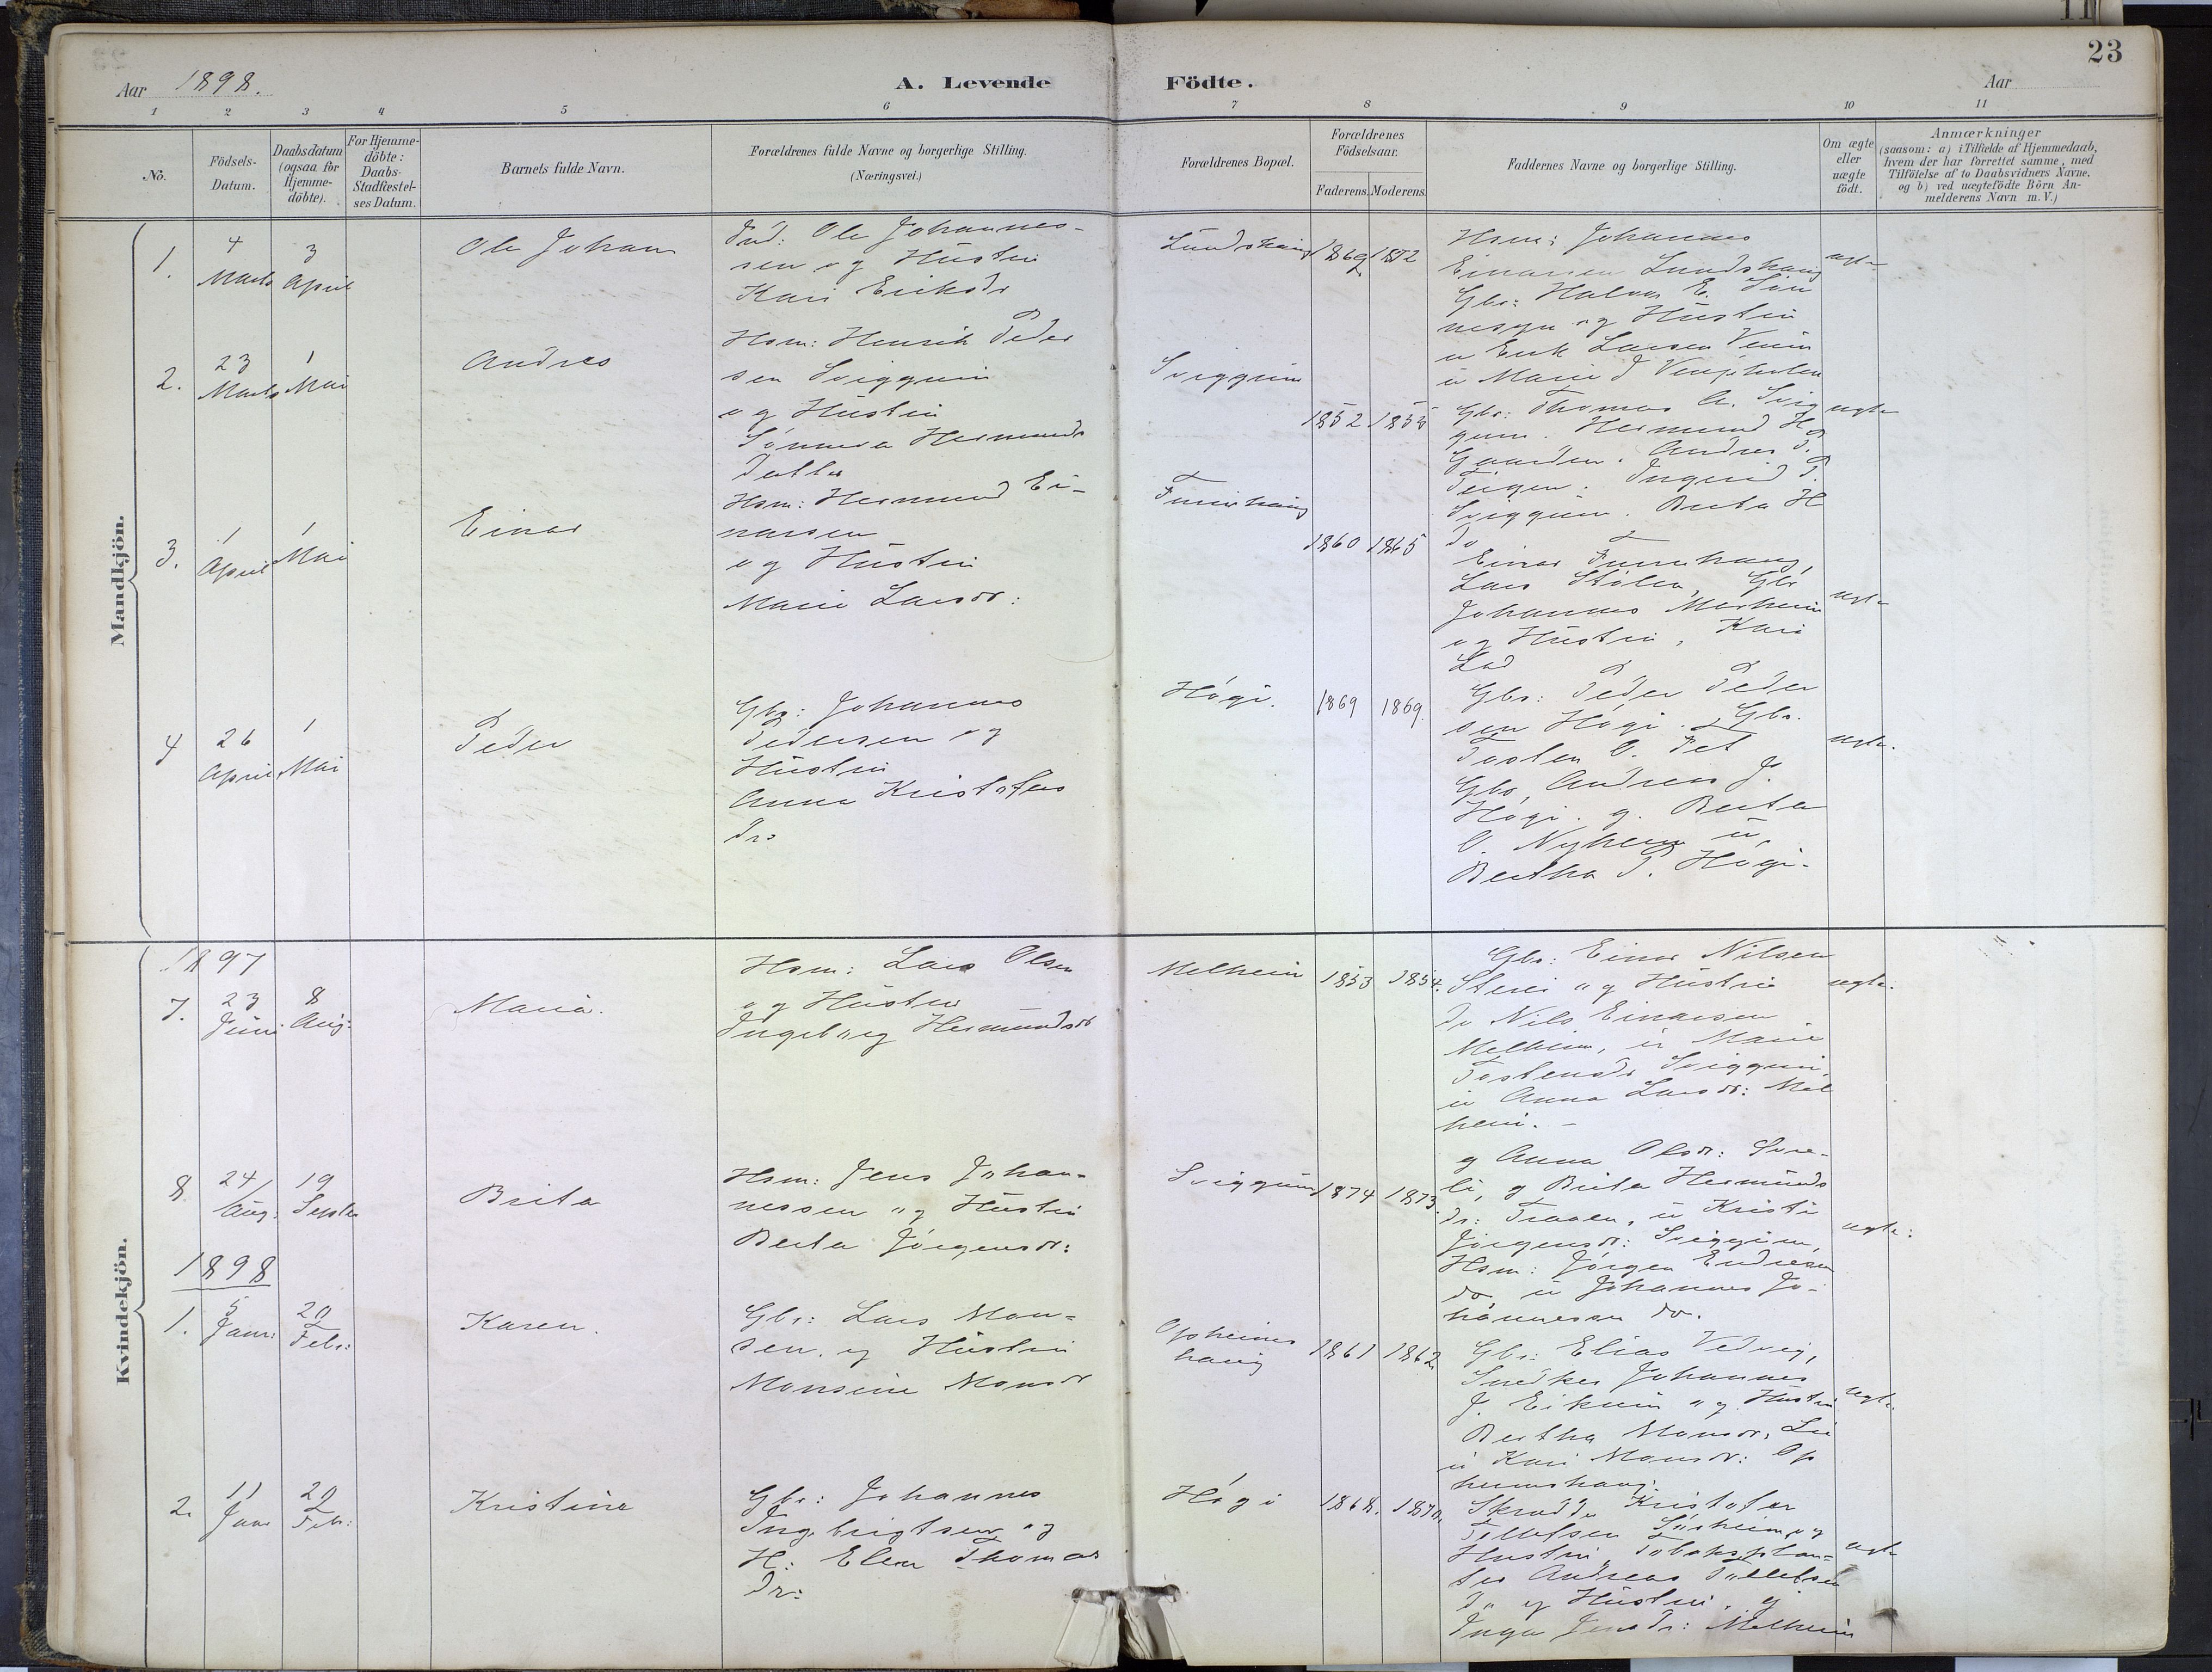 23
Aar 1898.
A. Levende Födte.
Aar
1 2 3 4 5 6 7 8 9 10 11
No.
Födsels-
Datum.
Daabsdatum
(ogsaa for
Hjemme-
döbte).
For Hjemme-
döbte:
Daabs-
Stadfæstel-
ses Datum.
Barnets fulde Navn.
Forældrenes fulde Navne og borgerlige Stilling.
(Næringsvei.)
Forældrenes Bopæl.
Forældrenes
Födselsaar.
Faderens. Moderens.
Faddernes Navne og borgerlige Stilling.
Om ægte
eller
uægte
födt.
Anmærkninger
(saasom: a) i Tilfælde af Hjemmedaab,
hvem der har forrettet samme, med
Tilföielse af to Daabsvidners Navne,
og b) ved uægtefödte Börn An-
melderens Navn m. V.)
Mandkjön.
1.
4
Marts
3
April
Ole Johan
Ind: Ole Johannes-
sen og Hustru
Kari Eriksdr
Lundshaug
1869 1872
Hsm: Johannes
Einarsen Lundshaug
Gbr: Halvor E.
og Hustru
u Erik Larsen
u Marie
ægte
2.
23
Marts
1
Mai
Andres
Hsm: Henrik Peder
sen Sviggum
og Hustru
Sønneva Hermunds
Datter
Sviggum
1852 1855
Gbr: Thomas A. Svig
gum. Hermund H
Gaarden. Andres P.
Teigen. Ingerid P.
Sviggum. Berta H
do
ægte
3.
1
April
1
Mai
Einar
Hsm: Hermund Ei-
narsen
og Hustru
Marie Larsdr:
1860 1865
Einar
Lars Stølen, Gbr
Johannes
og Hustru, Kari
ægte
4
26
April
1
Mai
Peder
Gbr: Johannes
Pedersen og
Hustru
Anna Kristofers
Dr:
Høgi.
1869 1869.
Gbr: Peder Peder
sen Høgi. Gbr.
Tosten O. Fet
Gbr, Andreas J.
Høgi. g. Berta
O. Nyheim u,
Bertha P. Høgi.
ægte.
Kvindekjön.
1897
7.
23
Juni
8
Aug:
Maria.
Hsm: Lars Olsen
og Hustru
Ingeborg Hermundsdr
Melheim
1853 1854.
Gbr: Einar Nilsen
og Hustru
Do Nils Einarsen
Melheim, u Marie
Tostensdr Sviggum,
u Anna Larsdr: Mel
heim. –
ægte.
8
24
Aug.
19
Septbr
Brita
Hsm: Jens Johan-
nessen og Hustru
Berta Jørgensdr:
Sviggum
1874 1873.
g Anna Olsdr:
g Brita Hermunds
dr: u Kristi
Jørgensdr: Sviggum,
Hsm: Jørgen Endresen
do u Johannes Jo-
hannessen do.
ægte:
1898
1.
5
Janr:
20
Febr:
Karen.
Gbr: Lars Mon=
sen. og Hustru
Monsine Monsdr
Opheims
haug
1861 1862
Gbr: Elias Vedvig,
Snedker Johannes
J. Eikum og Hustru
Bertha Monsdr, Lie
u Kari Monsdr: Op
heimshaug.
ægte.
2.
11
Jan
20
Febr:
Kristine
Gbr: Johannes
Ingebrigtsen og
H: Elen Thomas
Dr:
Høgi
1868. 1870.
Skrædder Kristofer
Tollefsen Sørheim og
Hustru, Tobaksplan=
ter Andreas Tollefsen
Do og Hustru, g
Inga Jensdr: Melheim
ægte